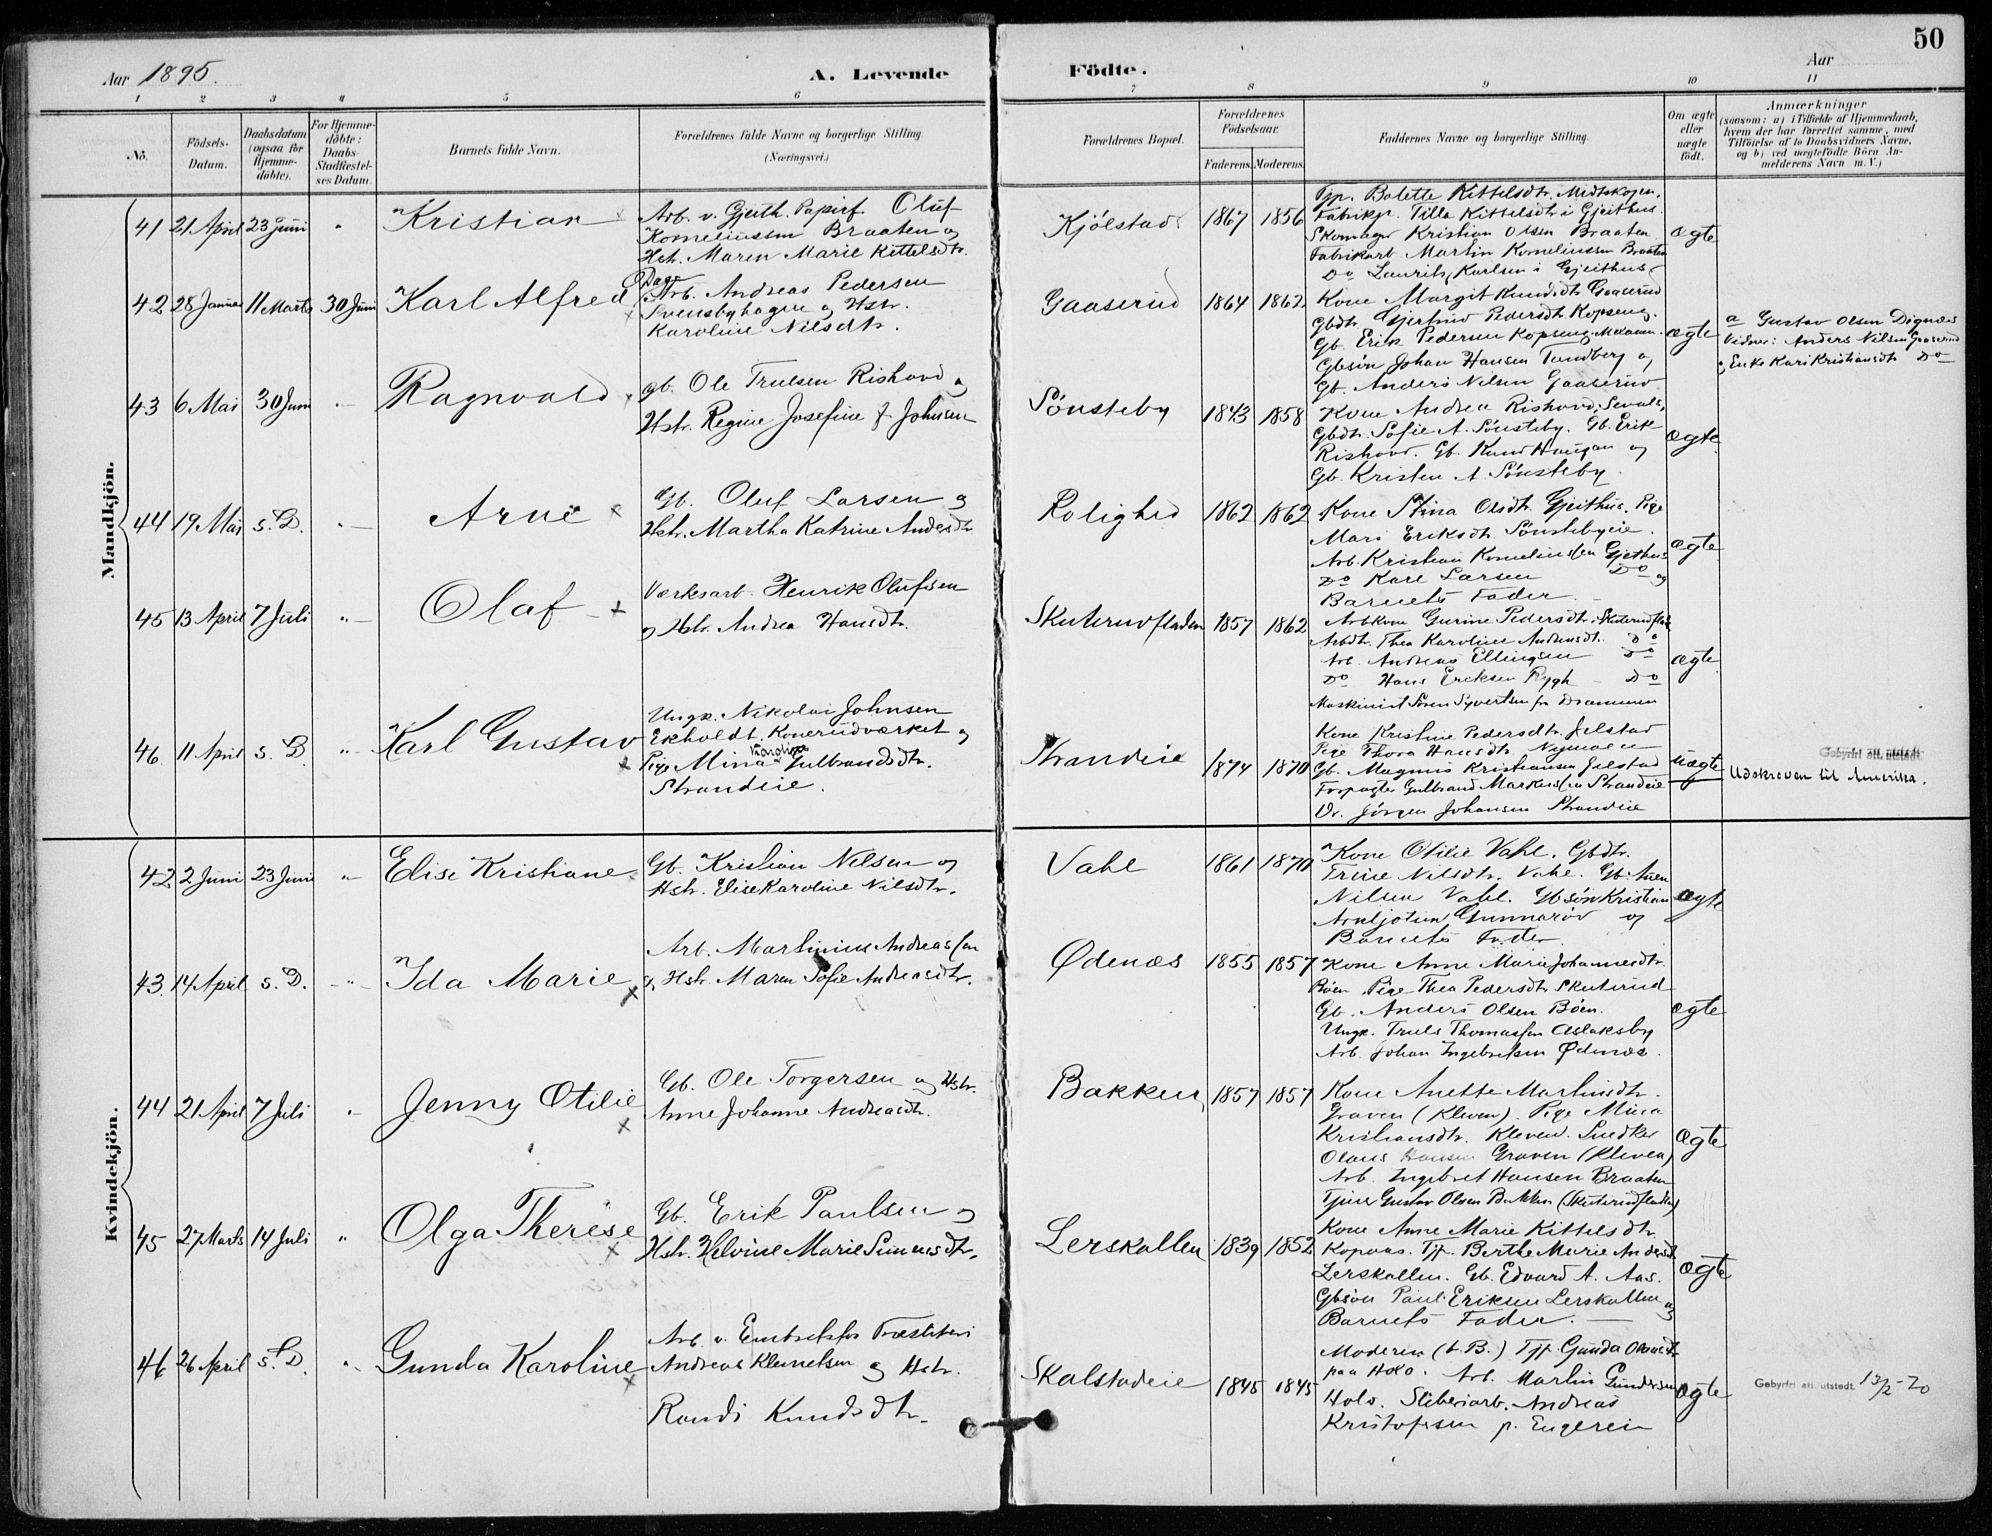 50
Aar 1895.
A. Levende
Födte.
Aar
1 2 3 4 5 6 7 8 9 10 11
No.
Födsels-
Datum.
Daabsdatum
(ogsaa for
Hjemme-
döbte).
For Hjemme-
döbte:
Daabs-
Stadfæstel-
ses Datum.
Barnets fulde Navn.
Forældrenes fulde Navne og borgerlige Stilling
(Næringsvei.)
Forældrenes Bopæl.
Forældrenes
Födselsaar.
Faderens. Moderens.
Faddernes Navne og borgerlige Stilling.
Om ægte
eller
uægte
födt.
Anmærkninger
(saasom: a) i Tilfælde af Hjemmedaab,
hvem der har forrettet samme, med
Tilföielse af to Daabsvidners Navne,
og b) ved uægtefödte Börn An-
melderens Navn m. V.)
Mandkjön.
41 21 April 23 Juni " Kristian
Arb. v. Gjeith. Papirf. Oluf
Korneliussen Braaten og
Hst. Maren Marie Kittelsdtr.
Kjölstad 1867 1856
Tjp. Bolette Kittelsdtr. Midtskogen.
Fabrikp. Tilla Kittelsdtr i Gjeithus.
Skomager Kristian Olsen Braaten
Fabrikarb. Martin Korneliussen Braaten
Do Laurits Karlsen i Gjeithus
ægte
42 28 Januar 11 Marts 30 Juni Karl Alfred
Dag
Arb. Andreas Pedersen
Svensbyhagen og Hstr.
Karoline Nilsdtr.
Gaaserud 1864 1862
Kone Margit Knudsdtr Gaaserud
Gbdtr. Gjertrud Pedersdtr Kopseng.
Gb. Erik Pedersen Kopseng.
Gbsön Johan Hansen Tandberg og
Gb. Anders Nilsen Gaaserud.
ægte
a Gustav Olsen Dignæs
Vidner: Anders Nilsen Gaaserud
og Enke Kari Kristiansdtr Do
43 6 Mai 30 Juni " Ragnvald
gb. Ole Trulsen Rishovd og
Hstr. Regine Josefine f. Johnsen
Sönsteby 1843 1858
Kone Andrea Rishovd,
Gbdtr. Sofie A. Sönsteby. Gb. Erik
Rishovd. Gb. Knud Haugan og
Gb. Kristen A. Sönsteby.
ægte
44 19 Mai s. D. " Arne
Gb. Oluf Larsen og
Hstr. Martha Katrine Andersdtr
Rolighed 1862 1862
Kone Stina Olsdtr. Gjeithus. Pige
Mari Eriksdtr Sönstebyeie.
Arb. Kristian Korneliussen Gjeithus
Do Karl Larsen Do og
Barnets Fader.
ægte
45 13 April 7 Juli " Olaf
Værksarb. Henrik Olufsen
og Hstr. Andrea Hansdtr.
Skuterudfladen 1857 1862
Arbkone Gurine Pedersdtr. Skuterudflad.
Arbdtr. Thea Karoline Andersdtr. Do
Arb. Andreas Ellingsen Do
Do Hans Eriksen Rygh Do
Maskinist Sören Syvertsen fra Drammen
ægte
46 11 April s. D. " Karl Gustav
Ungk. Nikolai Johnsen
Ekholdt, Konerudværket og
Karoline
Pige Mina Gulbrandsdtr.
Strandeie.
Strandeie 1874 1870
Kone Kristine Pedersdtr. Jelstad
Pige Thora Hansdtr Nymoen
Gb. Magnus Kristiansen Jelstad
Forpagter Gulbrand Markussen Strandeie
Do. Jörgen Johansen Strandeie
uægte
Gebyrfri att. utstedt.
Udskreven til Amerika.
Kvindekjön.
42 2 Juni 23 Juni " Elise Kristiane
Gb. Kristian Nilsen og
Hstr. Elise Karoline Nilsdtr.
Vahl 1861 1870
Kone Otilie Vahl. Gbdtr.
Trine Nilsdtr. Vahl. Gb. Aven
Nilsen Vahl. Gbsön Kristian
Arneljotsen Gunnaröv og
Barnets Fader.
ægte
43 14 April s. D. " Ida Marie
Arb. Martinius Andreassen
og Hstr. Maren Sofie Andreasdtr.
Ödenæs 1855 1857
Kone Anne Marie Johannesdtr.
Böen. Pige Thea Pedersdtr Skuterud
Gb. Anders Olsen Böen.
Ungk. Truls Thomassen Aslaksby
Arb. Johan Ingebretsen Ødenæs.
ægte
44 21 April 7 Juli " Jenny Otilie
Gb. Ole Torgersen og Hstr.
Anne Johanne Andreasdtr.
Bakken 1857 1857
Kone Anette Martinsdtr.
Graven (Kleven). Pige Mina
Kristiansdtr. Kleven. Snedker
Olaus Hansen Graven (Kleven)
Arb. Ingebret Hansen Braaten
Tjener Gustav Olsen Bakken (Skuterudfladen)
ægte
45 27 Marts 14 Juli " Olga Therese
Gb. Erik Paulsen og
Hstr. Helvine Marie Simensdtr.
Lerskallen 1839 1852
Kone Anne Marie Kittelsdtr.
Kopaas. Tjp. Berthe Marie Andersdtr
Lerskallen. Gb. Edvard A. Aas.
Gbsön Paul Eriksen Lerskallen og
Barnets Fader.
ægte
46 26 April s. D. " Gunda Karoline
Arb. v. Embretsfos Træsliberi
Andreas Klemetsen og Hstr.
Randi Knudsdtr.
Skalstadeie 1845 1845
Moderen (t. B.) Tjp. Gunda
paa Holo. Arb. Martin Gundersen
Holo. Sliberiarb. Andreas
Kristofersen p. Engerein
ægte
Gebyrfri att. utstedt. 13/2-70